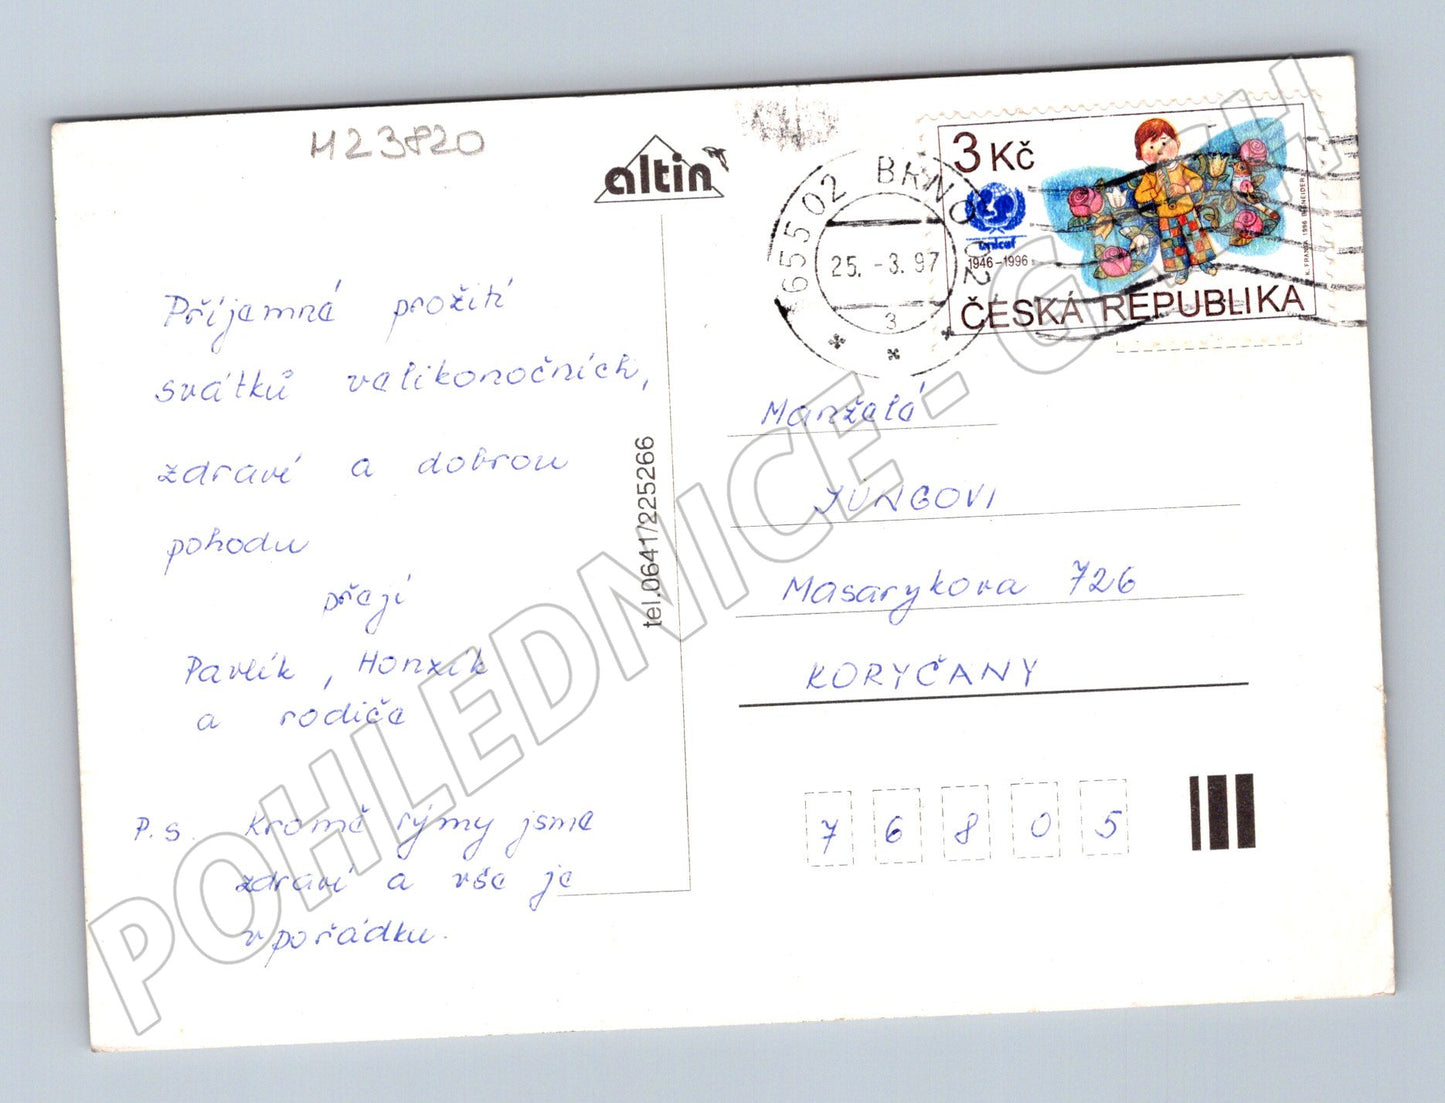 H23820
altin
65502 BRNO 02
25. -3. 97
3
3 Kč
unicef
1946-1996
ČESKÁ REPUBLIKA
Příjemné prožití
svátků velikonočních,
zdraví a dobrou
pohodu
přejí
Pavlík, Honzík
a rodiče
P.S. Kromě rýmy jsme
zdraví a vše je
v pořádku.
tel.0641/225266
Manželé
JUNGOVI
Masarykova 726
KORYČANY
76805
POHLEDNICE - G